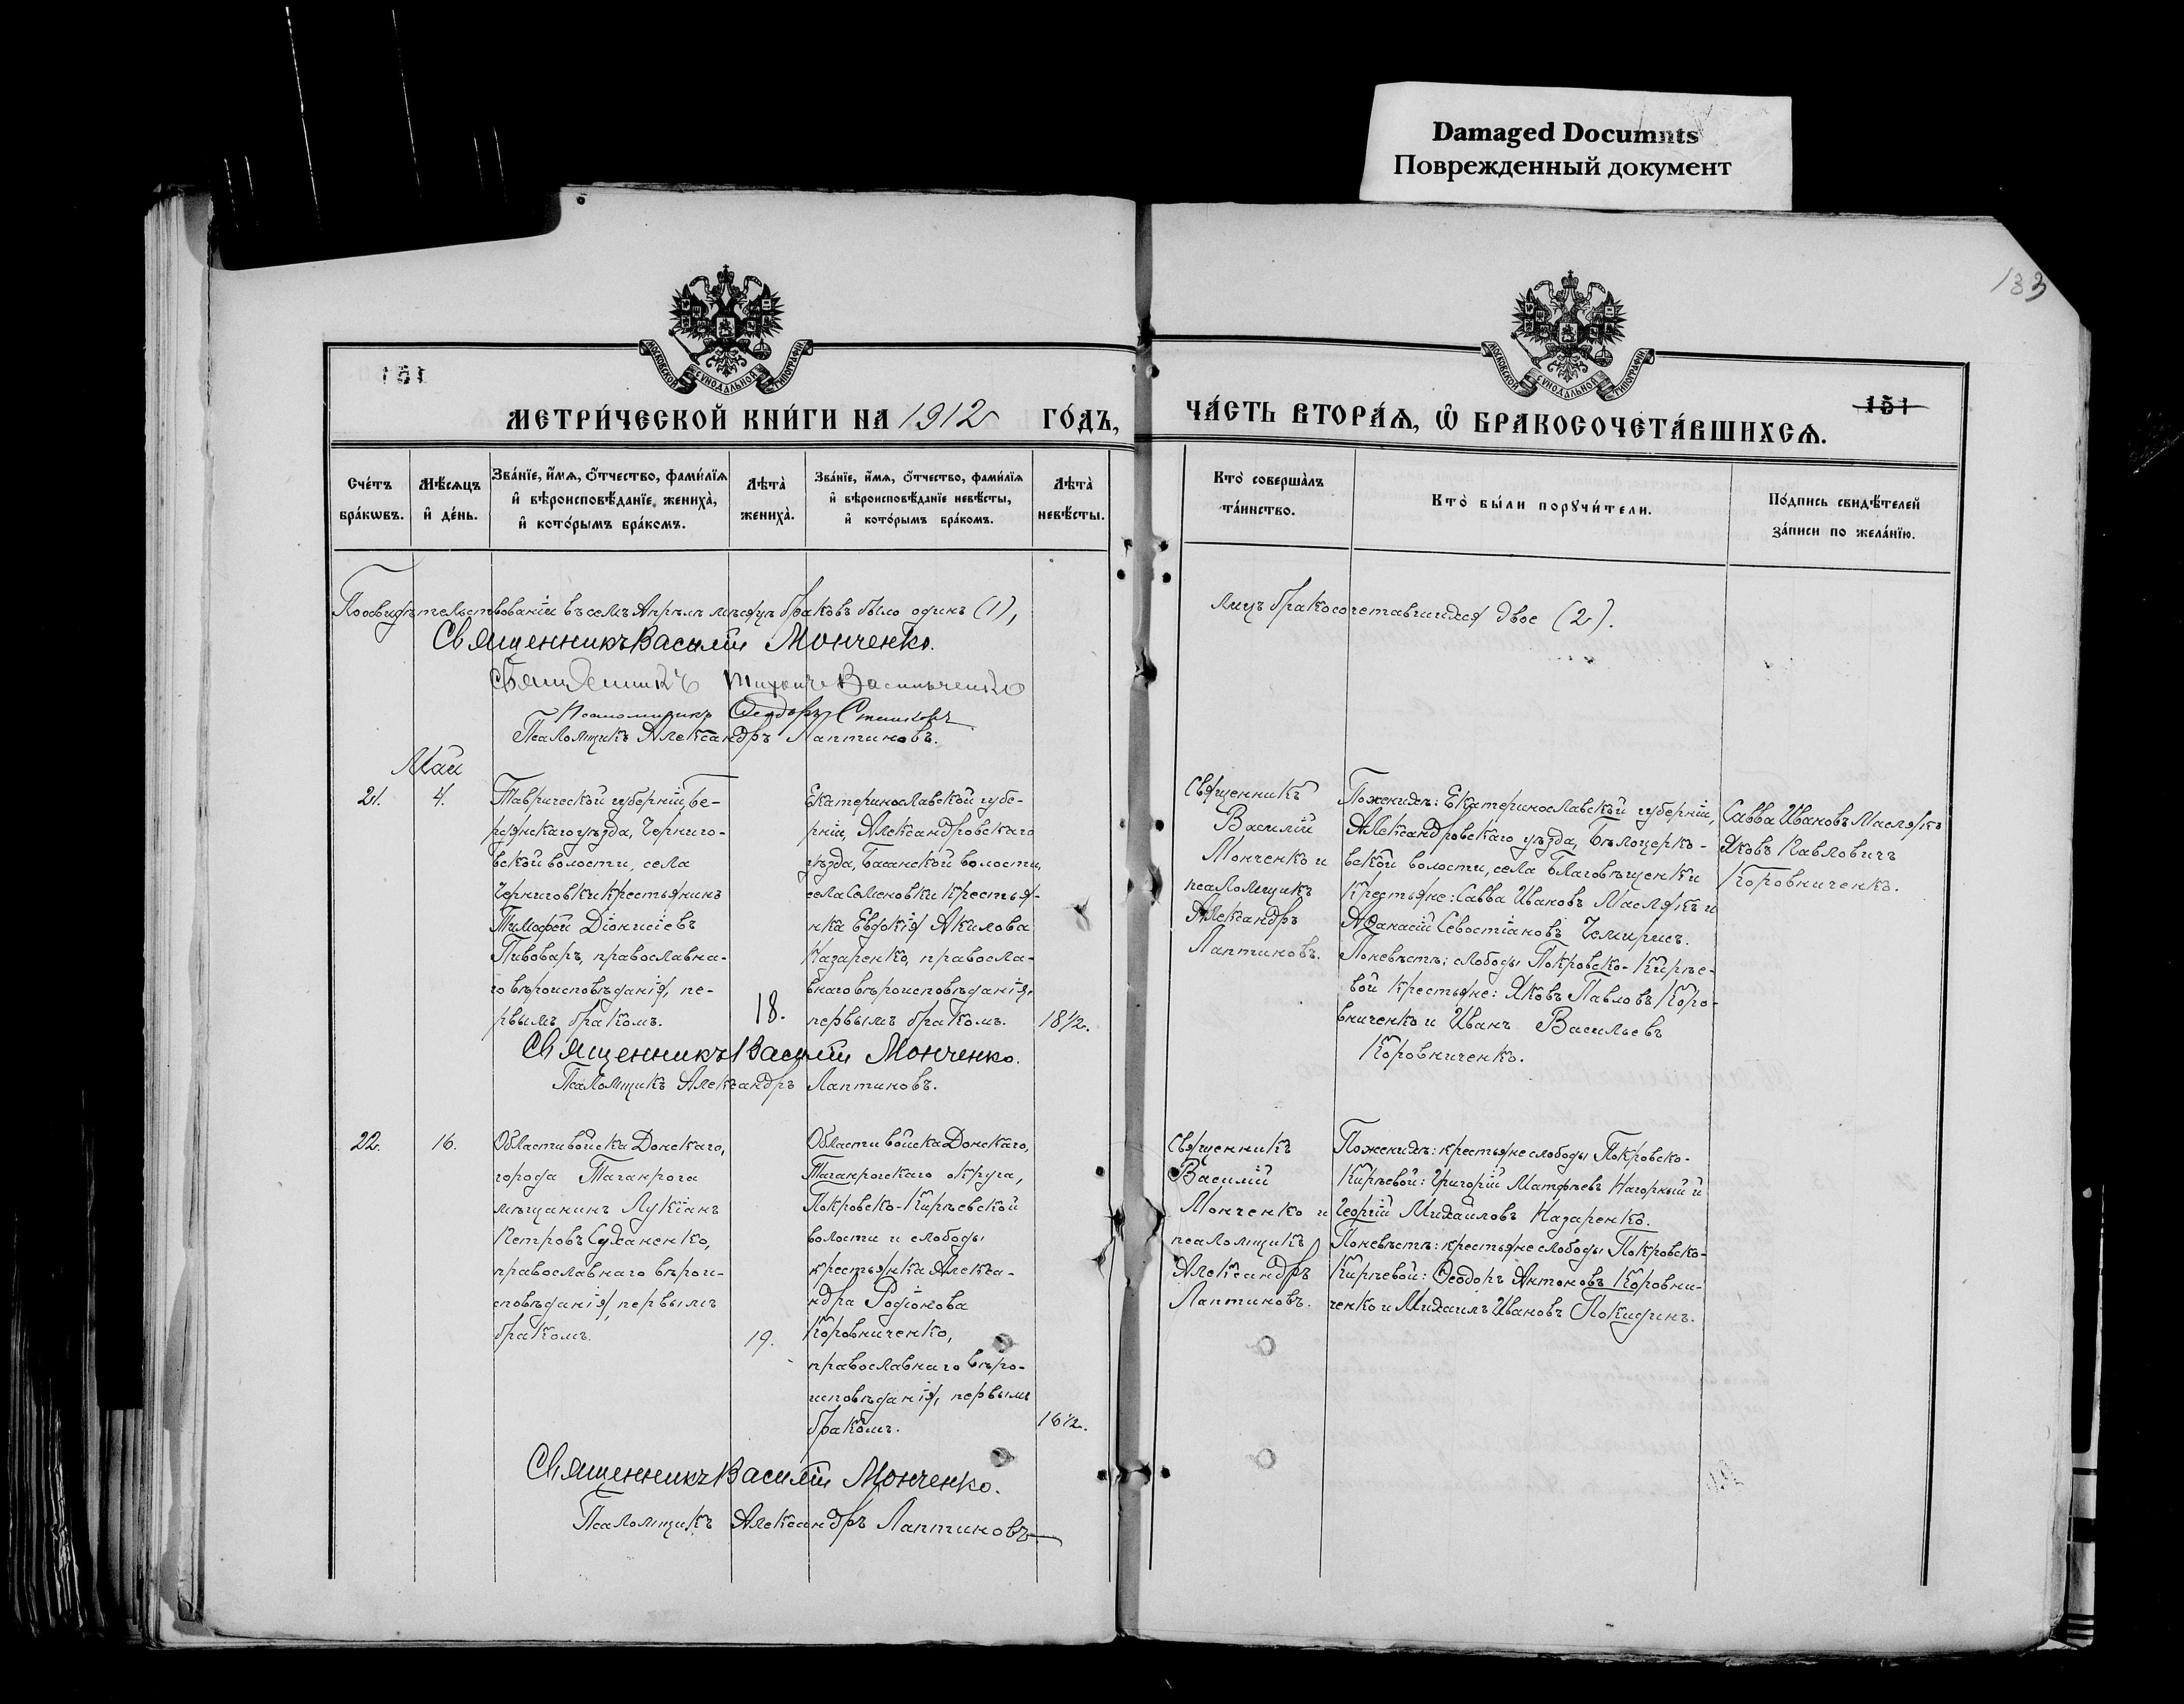 Damaged Documnts
Поврежденный документ
133
151
МОСКОВСКОЙ СѴНОДАЛЬНОЙ ТИПОГРАФІИ
МОСКОВСКОЙ СѴНОДАЛЬНОЙ ТИПОГРАФІИ
МЕТРИ́ЧЕСКОЙ КНИ́ГИ НА 1912 ГО́ДЪ,
ЧА́СТЬ ВТОРА́Я, Ѡ҆ БРАКОСОЧЕТА́ВШИХСЯ.
151
Сче́тъ бра́кωвъ.
Мѣ́сяцъ и҆ де́нь.
Зва́нїе, и҆́мя, о҆́тчество, фами́лїя и҆ вѣроисповѣ́данїе, жениха̀, и҆ кото́рымъ бра́комъ.
Лѣта̀ жениха̀.
Зва́нїе, и҆́мя, о҆́тчество, фами́лїя и҆ вѣроисповѣ́данїе невѣ́сты, и҆ кото́рымъ бра́комъ.
Лѣта̀ невѣ́сты.
Кто̀ соверша̀лъ та́инство.
Кто̀ бы́ли порꙋчи́тели.
По́дпись свидѣ́телей за́писи по жела́нїю.
По освидѣтельствованіи въ семъ Апрѣлѣ мѣсяцѣ браковъ было одинъ (1),
лицъ бракосочетавшихся двое (2).
Священникъ Василій Монченко.
Священникъ Тихонъ Васильченко
Псаломщикъ Ѳеодоръ
Псаломщикъ Александръ Лаптиновъ.
Май
21.
4.
Таврической губерніи, Бе-
рдянскаго уѣзда, Черниго-
вской волости, села
Черниговки крестьянинъ
Тимофей Діонисіевъ
Пивоваръ, православна-
го вѣроисповѣданія, пе-
рвымъ бракомъ.
18.
Екатеринославской губе-
рніи, Александровскаго
уѣзда, Басанской волости,
села Семеновки крестья-
нка Евдокія Акилова
Назаренко, правосла-
внаго вѣроисповѣданія,
первымъ бракомъ.
18½.
Священникъ
Василій
Монченко и
псаломщикъ
Александръ
Лаптиновъ.
По женихѣ: Екатеринославской губерніи,
Александровскаго уѣзда, Бѣлоцерко-
вской волости, села Благовѣщенки
крестьяне: Савва Ивановъ Маслякъ и
Аѳанасій Севостіановъ Чемирисъ.
По невѣстѣ: слободы Покровско-Кирѣе-
вой крестьяне: Яковъ Павловъ Коро-
вниченко и Иванъ Васильевъ
Коровниченко.
Савва Ивановъ Маслякъ
Яковъ Павловичъ
Коровниченко.
Священникъ Василій Монченко.
Псаломщикъ Александръ Лаптиновъ.
22.
16.
Области войска Донскаго,
города Таганрога
мѣщанинъ Лукіанъ
Петровъ Суханенко,
православнаго вѣрои-
сповѣданія, первымъ
бракомъ.
19.
Области войска Донскаго,
Таганрогскаго округа,
Покровско-Кирѣевской
волости и слободы
крестьянка Алекса-
ндра Родіонова
Коровниченко,
православнаго вѣро-
исповѣданія, первымъ
бракомъ.
16½.
Священникъ
Василій
Монченко и
псаломщикъ
Александръ
Лаптиновъ.
По женихѣ: крестьяне слободы Покровско-
Кирѣевой: Григорій Матѳѣевъ Нагорный и
Георгій Михаиловъ Назаренко.
По невѣстѣ: крестьяне слободы Покровско-
Кирѣевой: Ѳеодоръ Антоновъ Коровни-
ченко и Михаилъ Ивановъ Покидинъ.
Священникъ Василій Монченко.
Псаломщикъ Александръ Лаптиновъ